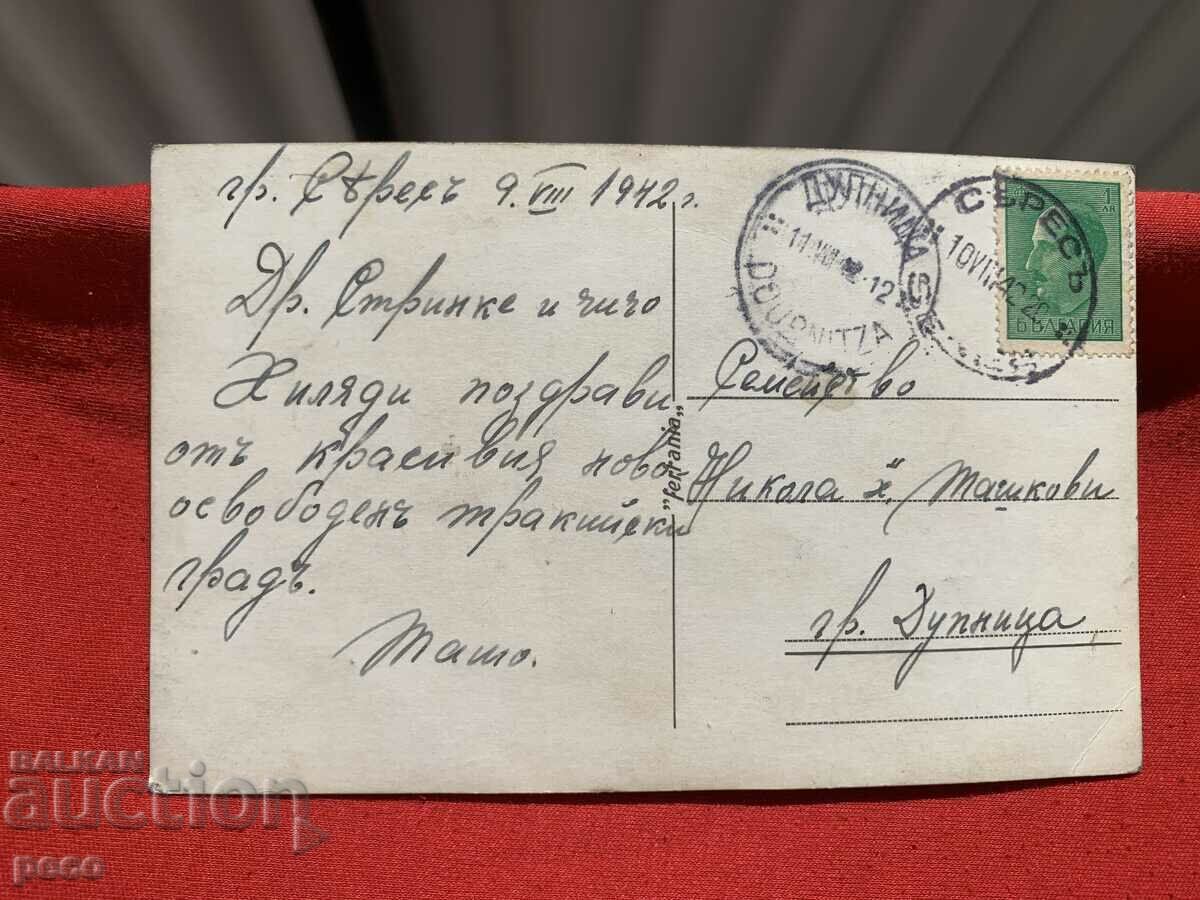 гр. Сѣресъ 9. VIII 1942 г.
Др. Стринке и чичо
Хиляди поздрави
отъ красивия ново-
освободенъ тракийски
градъ.
Ташо.
„ferrania“
ДУПНИЦА
11.VIII.42-12
DOUPNITZA
СЕРЕСЪ
10.VIII.42.20
1 ЛВ
БЪЛГАРИЯ
Семейство
Никола х. Ташкови
гр. Дупница
BALKAN
auction
peco